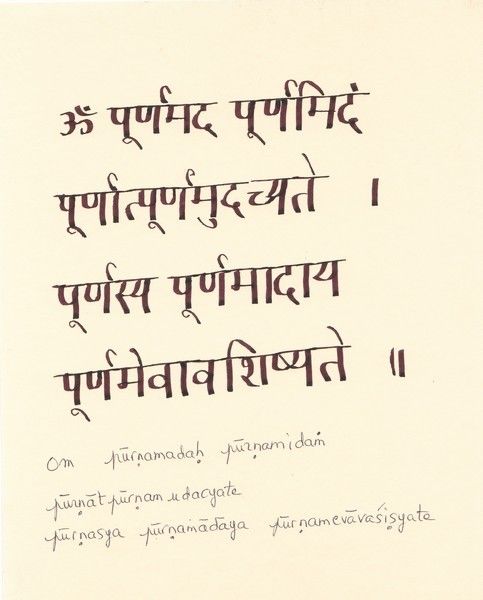 ॐ पूर्णमद पूर्णमिदं
पूर्णात्पूर्णमुदच्यते ।
पूर्णस्य पूर्णमादाय
पूर्णमेवावशिष्यते ॥
om pūrṇamadaḥ pūrṇamidaṁ
pūrṇāt pūrṇam udacyate
pūrṇasya pūrṇamādāya pūrṇamevāvaśiṣyate